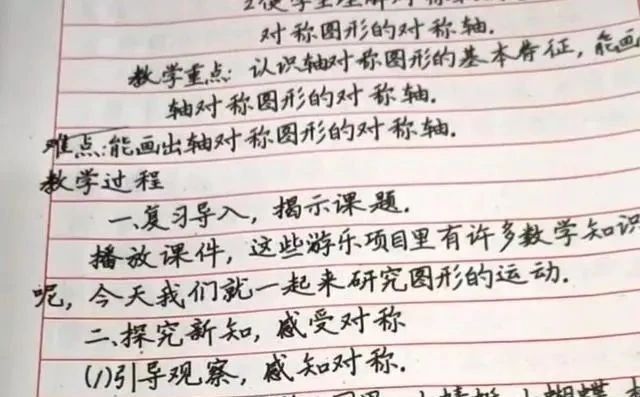 2使学生理解对称
对称图形的对称轴.
教学重点: 认识轴对称图形的基本特征, 能画
轴对称图形的对称轴.
难点:能画出轴对称图形的对称轴.
教学过程
一、复习导入, 揭示课题.
播放课件, 这些游乐项目里有许多数学知识
呢, 今天我们就一起来研究图形的运动.
二、探究新知, 感受对称
(1)引导观察, 感知对称.
蜻蜓 蝴蝶